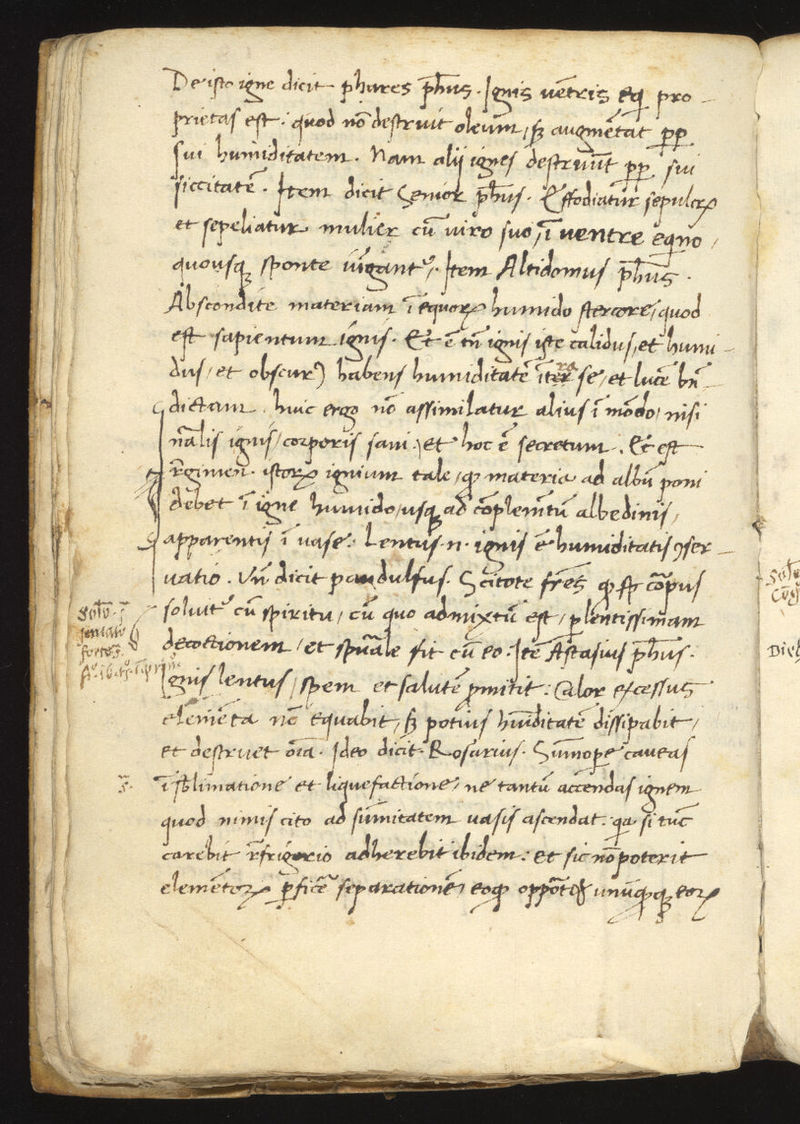 De isto igne dicit phares ph̄us. Ignis uētris eqi pro-
prietas est. quod nō destruit oleum, sȝ augmētat pp
sui humiditatem. Nam alij ignes destruūt pp sui
siccitatē. Item dicit Senior ph̄us. Effodiatur sepulcrꝝ
et sepeliatur mulier cū viro suo, ī ventre eqino,
quousqȝ sponte iūgantr. Item Altidomus ph̄us.
Abscondite materiam ī equorꝝ humido stercore, quod
est sapientum ignis. Et ē tn̄ ignis iste calidus, et humi-
dus, et obscurꝰ habens humiditatē īter se, et lucē bn̄-
dictam. huic ergo nō assimilatur alius ī mōdo, nisi
nālis ignis, corporis sani, et hoc ē secretum. Et est
r̄gimen istorꝝ ignium tale, qꝫ materia ad albū poni
debet ī igne humido, usqȝ ad cōplemētū albedinis,
apparentis ī uase. Lentus .n. ignis ē humiditatis ꝯser-
uatio. Vn̄ dicit pandulfus. Scitote fr̄es qꝫ ꝙ corpus
soluitr cū spiritu, cū quo admixtū est, p lentissimam
decoctionem, et spūale fit cū eo. Itē Astasius ph̄us.
Ignis lentus, spem et salutē pmittit. Calor excessus
elemēta nō equabit, sȝ potius hūiditatē dissipabit,
et destruet oīa. Ideo dicit Rosarius. Sūmope caueas
ī sb̄limatione et liquefactione, ne tantū accendas ignem
quod nimis cito ad sūmitatem uasis ascendat. qa si tūc
carebit r̄frigerio adherebit ibidem. et sic nō poterit
elemētorꝝ pficē separationē, eoqꝫ unūqꝫqȝ eorꝝ